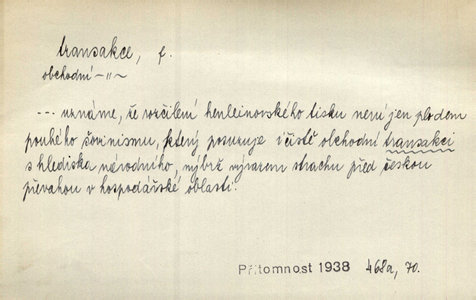 transakce, f.
obchodní -"-
--- uznáme, že rozčilení henleinovského tisku není jen plodem
pouhého šovinismu, který posuzuje i čistě obchodní transakci
s hlediska národního, nýbrž výrazem strachu před českou
převahou v hospodářské oblasti.
Přítomnost 1938 468a, 70.